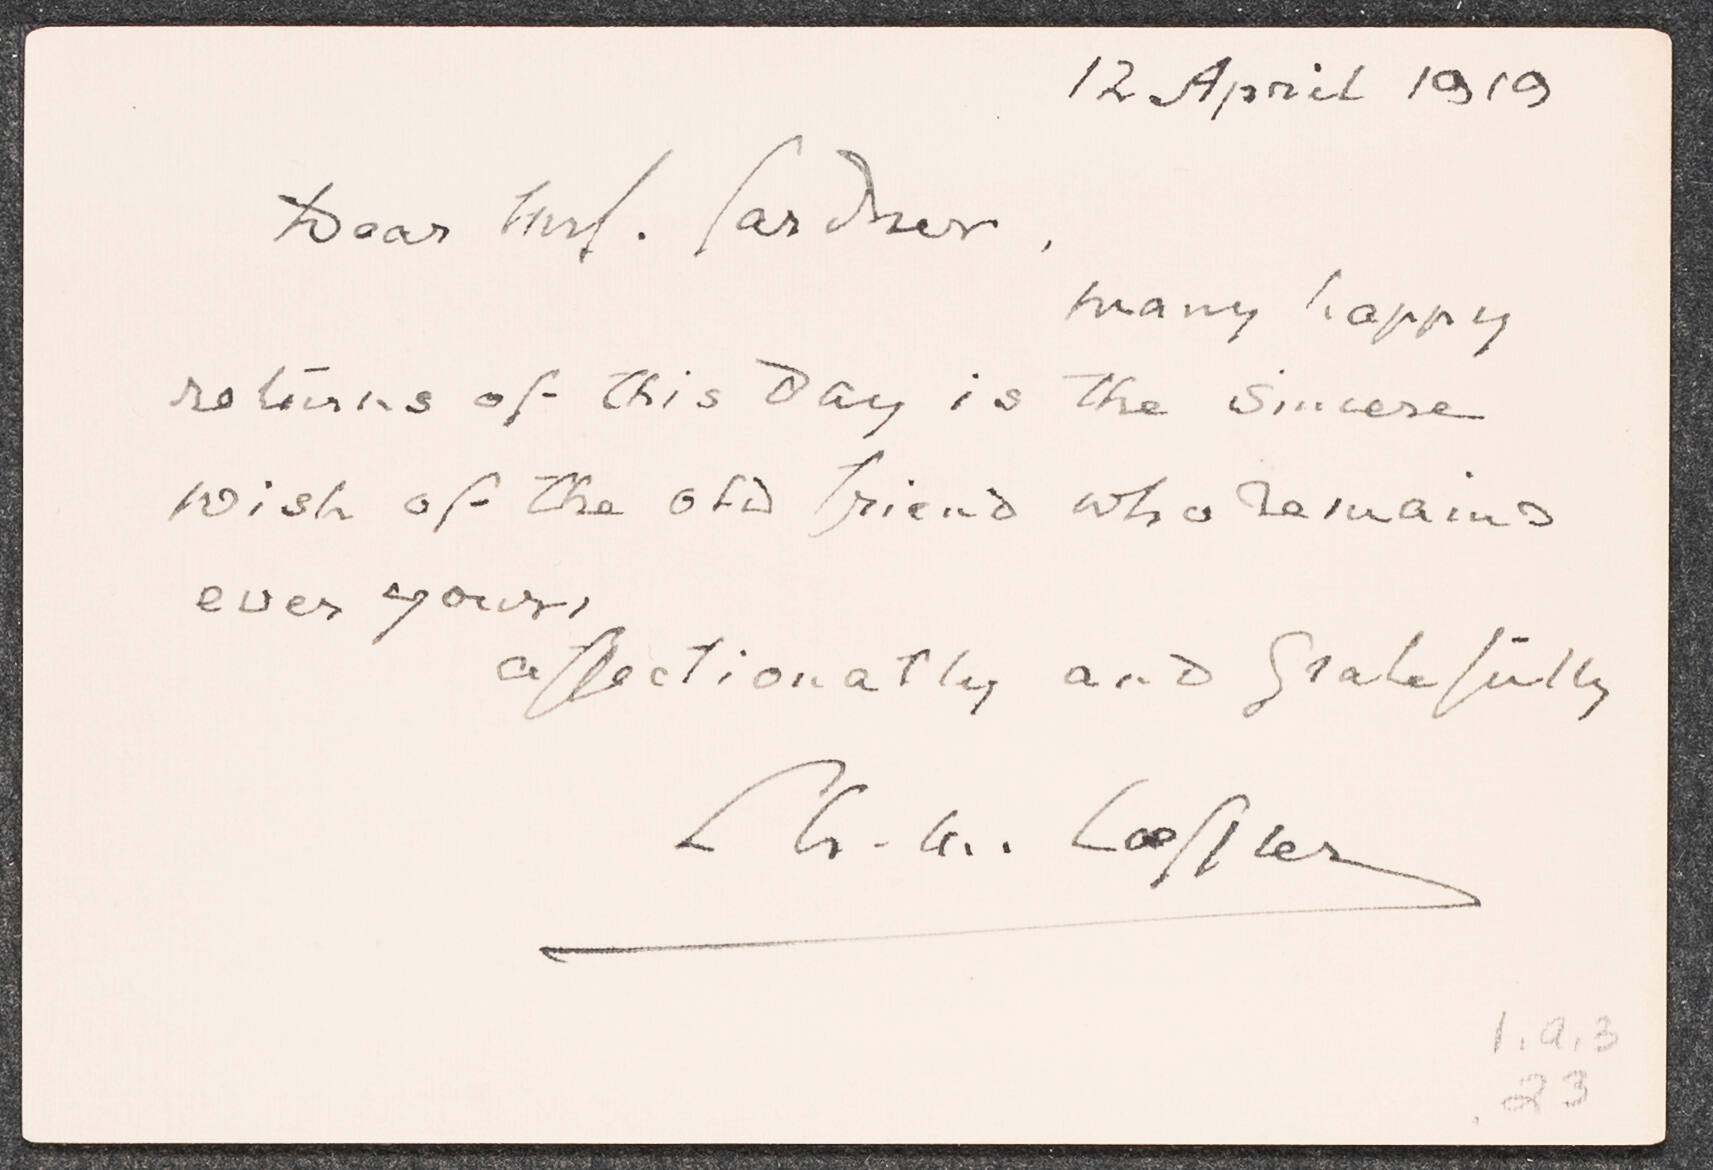 12 April 1919
Dear Mrs. Gardner,
many happy
returns of this Day is the sincere
wish of the old friend who remains
ever yours,
affectionatly and gratefully
Ch. M. Loeffler
1.a.3
.23